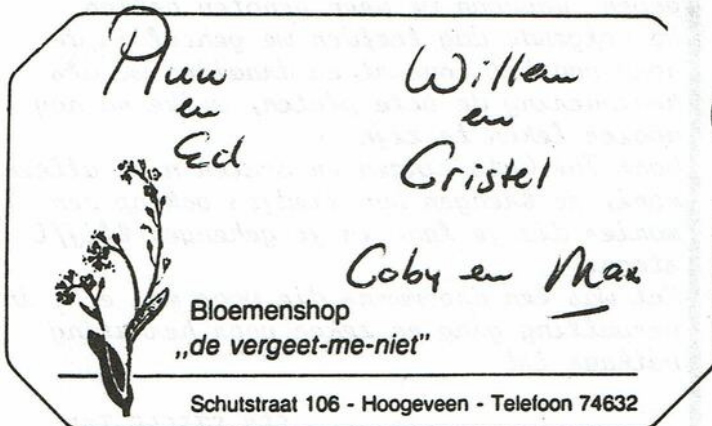 en
Ed
Willem
en
Cristel
Coby en Max
Bloemenshop
„de vergeet-me-niet”
Schutstraat 106 - Hoogeveen - Telefoon 74632